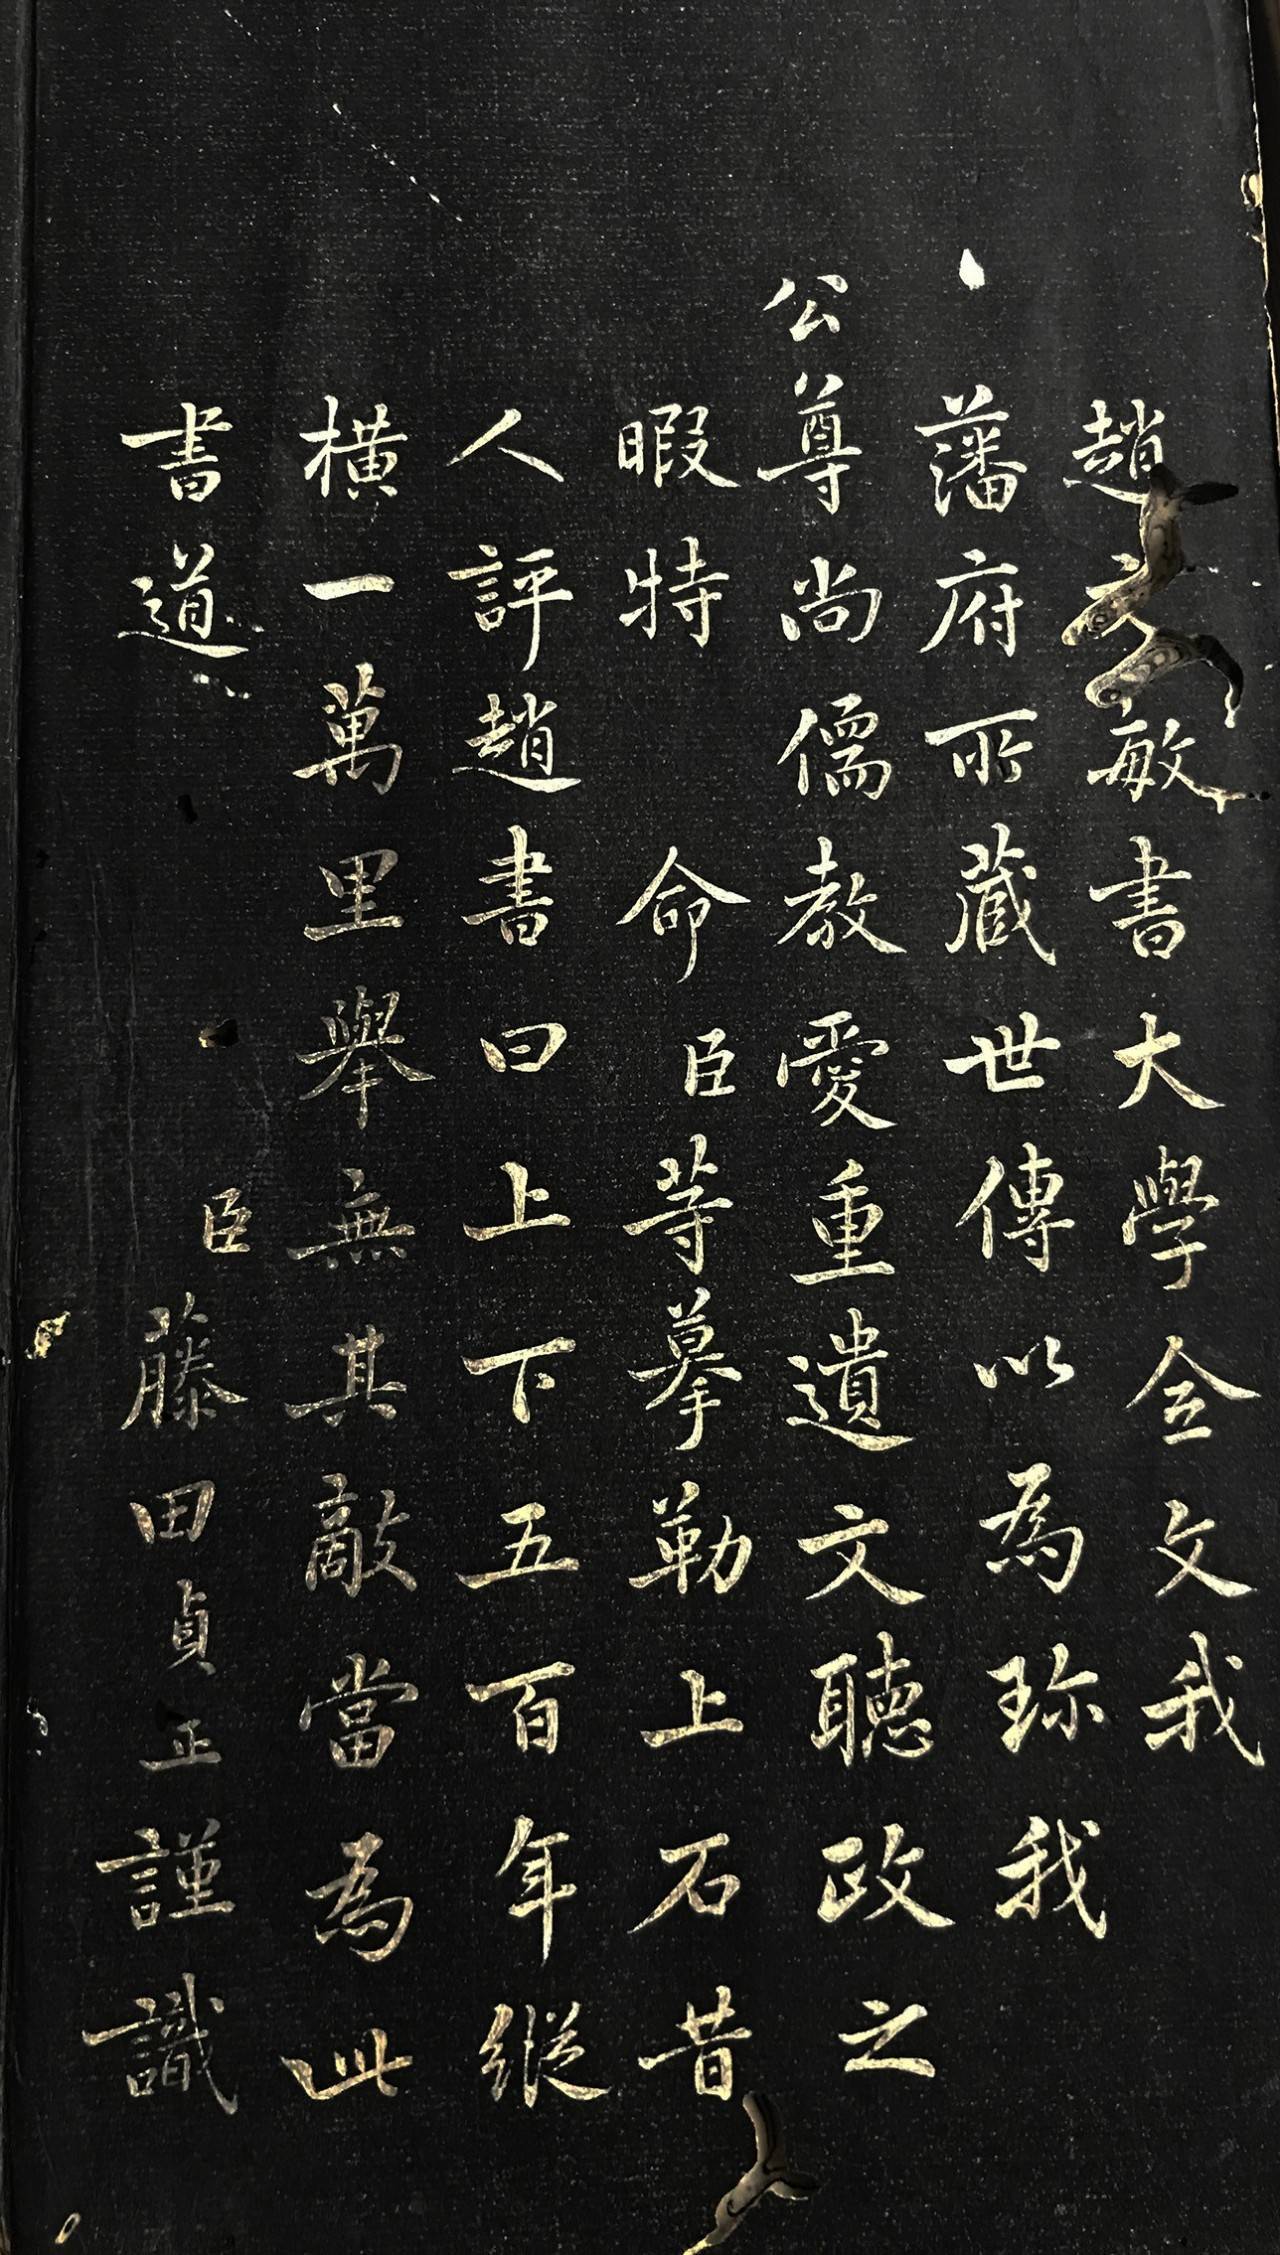 趙文敏書大學全文我
藩府所蔵世傳以為珎我
公尊尚儒教愛重遺文聴政之
暇特 命臣等摹勒上石昔
人評趙書曰上下五百年縱
橫一萬里舉無其敵當為此
書道 臣藤田貞正謹識